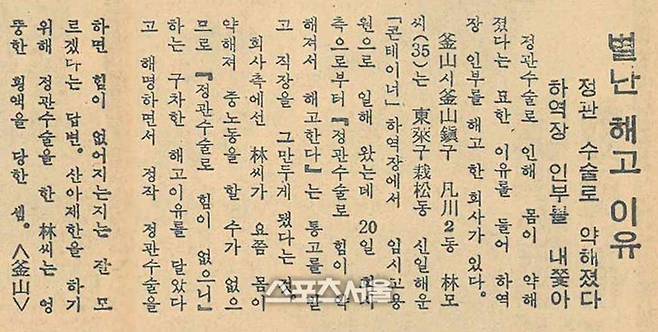 별난 해고 이유
정관 수술로 약해졌다
하역장 인부를 내쫓아
정관수술로 인해 몸이 약해
졌다는 묘한 이유를 들어 하역
장 인부를 해고 한 회사가 있다.
釜山시釜山鎭구 凡川2동 林모
씨(35)는 東萊구 栽松동 신일해운
「콘테이너」하역장에서 임시고용
원으로 일해 왔는데 20일 회사
측으로부터 『정관수술로 힘이 약
해져서 해고한다』는 통고를 받
고 직장을 그만두게 됐다는 것.
회사측에선 林씨가 요즘 몸이
약해져 중노동을 할 수가 없으
므로 『정관수술로 힘이 없으니』
하는 구차한 해고이유를 달았다
고 해명하면서 정작 정관수술을
하면 힘이 없어지는지는 잘 모
르겠다는 답변. 산아제한을 하기
위해 정관수술을 한 林씨는 엉
뚱한 횡액을 당한 셈. <釜山>
스포츠서울